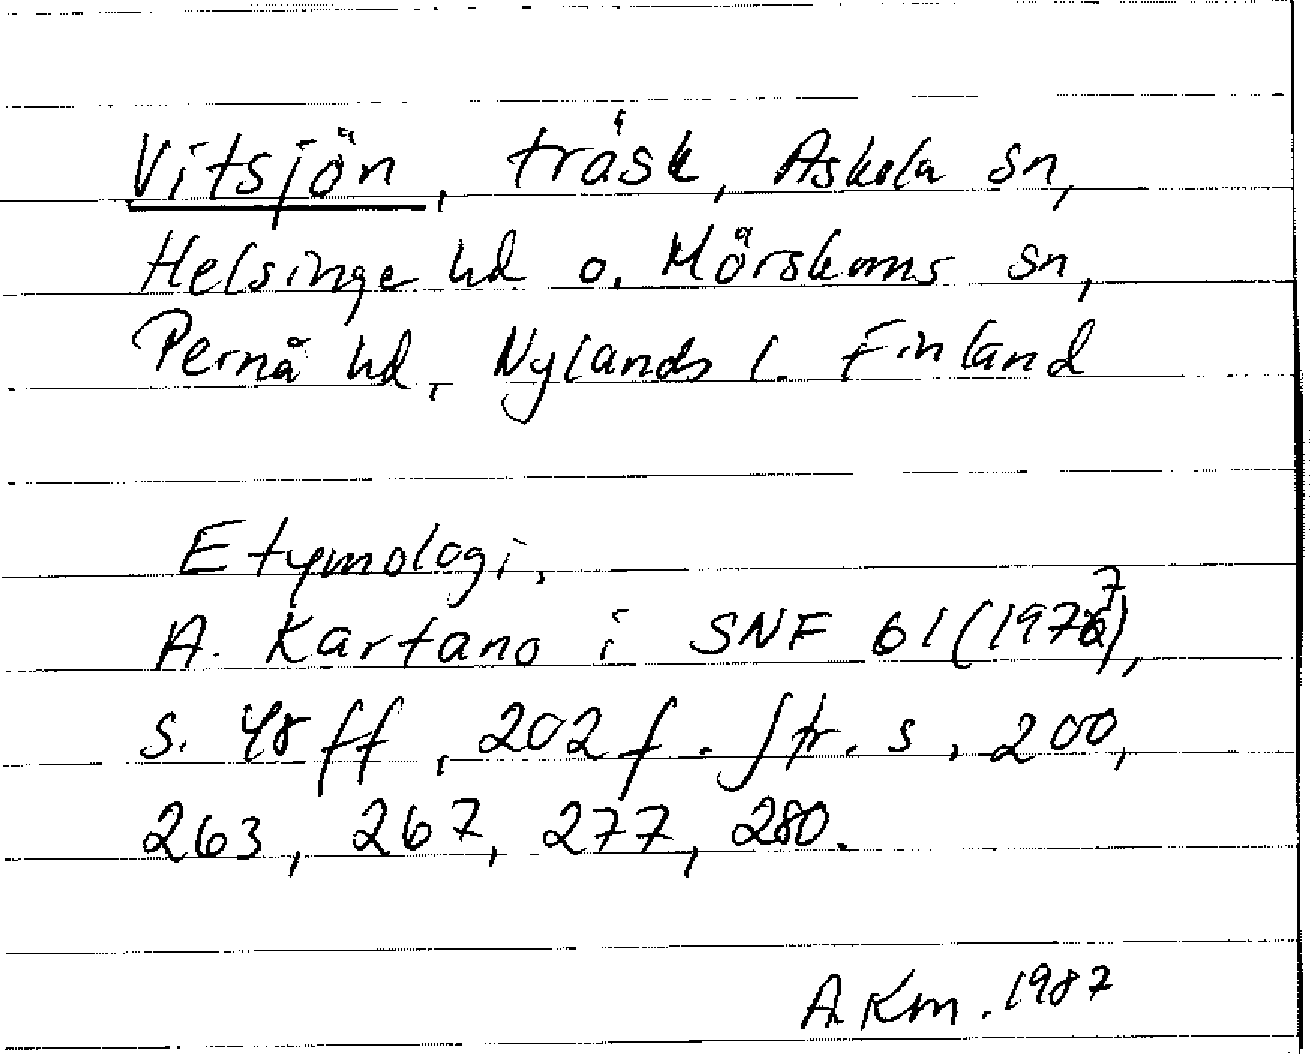 Vitsjön, träsk, Askola sn,
Helsinge hd o. Mörskoms sn,
Pernå hd, Nylands l. Finland
Etymologi.
A. Kartano i SNF 61 (1977),
s. 48 ff, 202 f. Jfr. s, 200,
263, 267, 277, 280.
A. Km. 1987